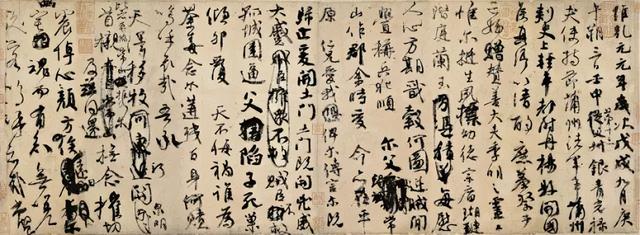 維乾元元年歲次戊戌九月庚
午朔三日壬申第十三叔銀青光祿
夫使持節蒲州諸軍事蒲州
刺史上輕車都尉丹楊縣開國
侯真卿以清酌庶羞祭于
亡姪贈贊善大夫季明之靈曰
惟尔挺生夙標幼德宗廟瑚璉
階庭蘭玉每慰
人心方期戩穀何圖逆賊閒
釁稱兵犯順尔父竭誠常
山作郡余時受命亦在平
原仁兄愛我俾尔傳言尔既
歸止爰開土門土門既開凶威
大蹙賊臣不救
孤城圍逼父陷子死巢
傾卵覆天不悔禍誰為
荼毒念尔遘殘百身何贖
嗚呼哀哉吾承
天澤移牧河關泉明
首櫬及茲同還撫念摧切
震悼心顏方俟
魂而有知無嗟
久客嗚呼哀哉尚饗